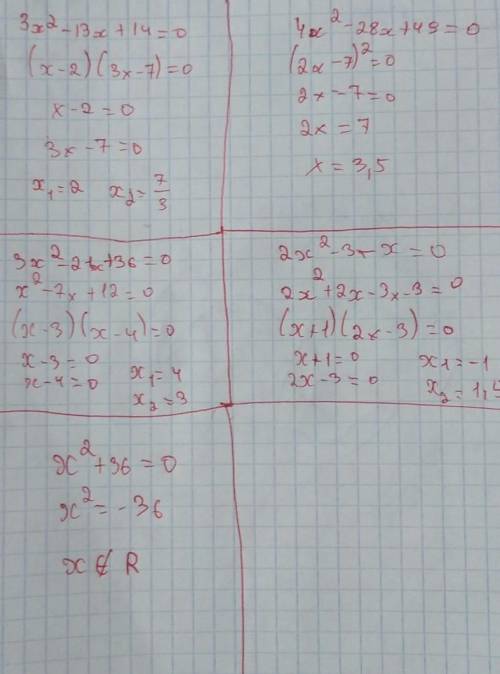 3x² - 13x + 14 = 0
(x-2)(3x-7) = 0
x - 2 = 0
3x - 7 = 0
x₁ = 2 x₂ = 7/3
4x² - 28x + 49 = 0
(2x - 7)² = 0
2x - 7 = 0
2x = 7
x = 3,5
3x² - 21x + 36 = 0
x² - 7x + 12 = 0
(x-3)(x-4) = 0
x - 3 = 0
x - 4 = 0 x₁ = 4
x₂ = 3
2x² - 3 - x = 0
2x² + 2x - 3x - 3 = 0
(x+1)(2x-3) = 0
x + 1 = 0 x₁ = -1
2x - 3 = 0 x₂ = 1,5
x² + 36 = 0
x² = -36
x ∉ R